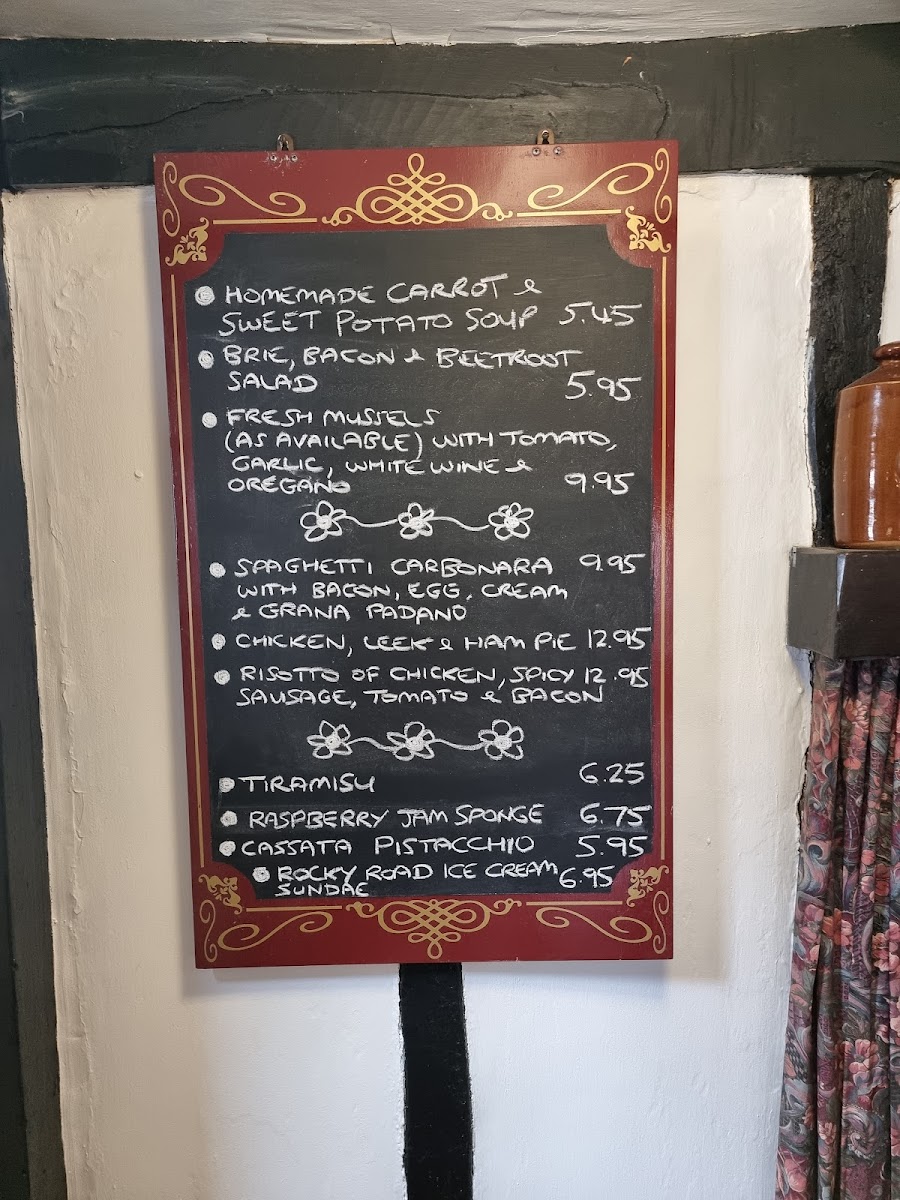 HOMEMADE CARROT &
SWEET POTATO SOUP 5.45
BRIE, BACON & BEETROOT
SALAD 5.95
FRESH MUSSELS
(AS AVAILABLE) WITH TOMATO,
GARLIC, WHITE WINE &
OREGANO 9.95
SPAGHETTI CARBONARA 9.95
WITH BACON, EGG, CREAM
& GRANA PADANO
CHICKEN, LEEK & HAM PIE 12.95
RISOTTO OF CHICKEN, SPICY 12.95
SAUSAGE, TOMATO & BACON
TIRAMISU 6.25
RASPBERRY JAM SPONGE 6.75
CASSATA PISTACCHIO 5.95
ROCKY ROAD ICE CREAM 6.95
SUNDAE